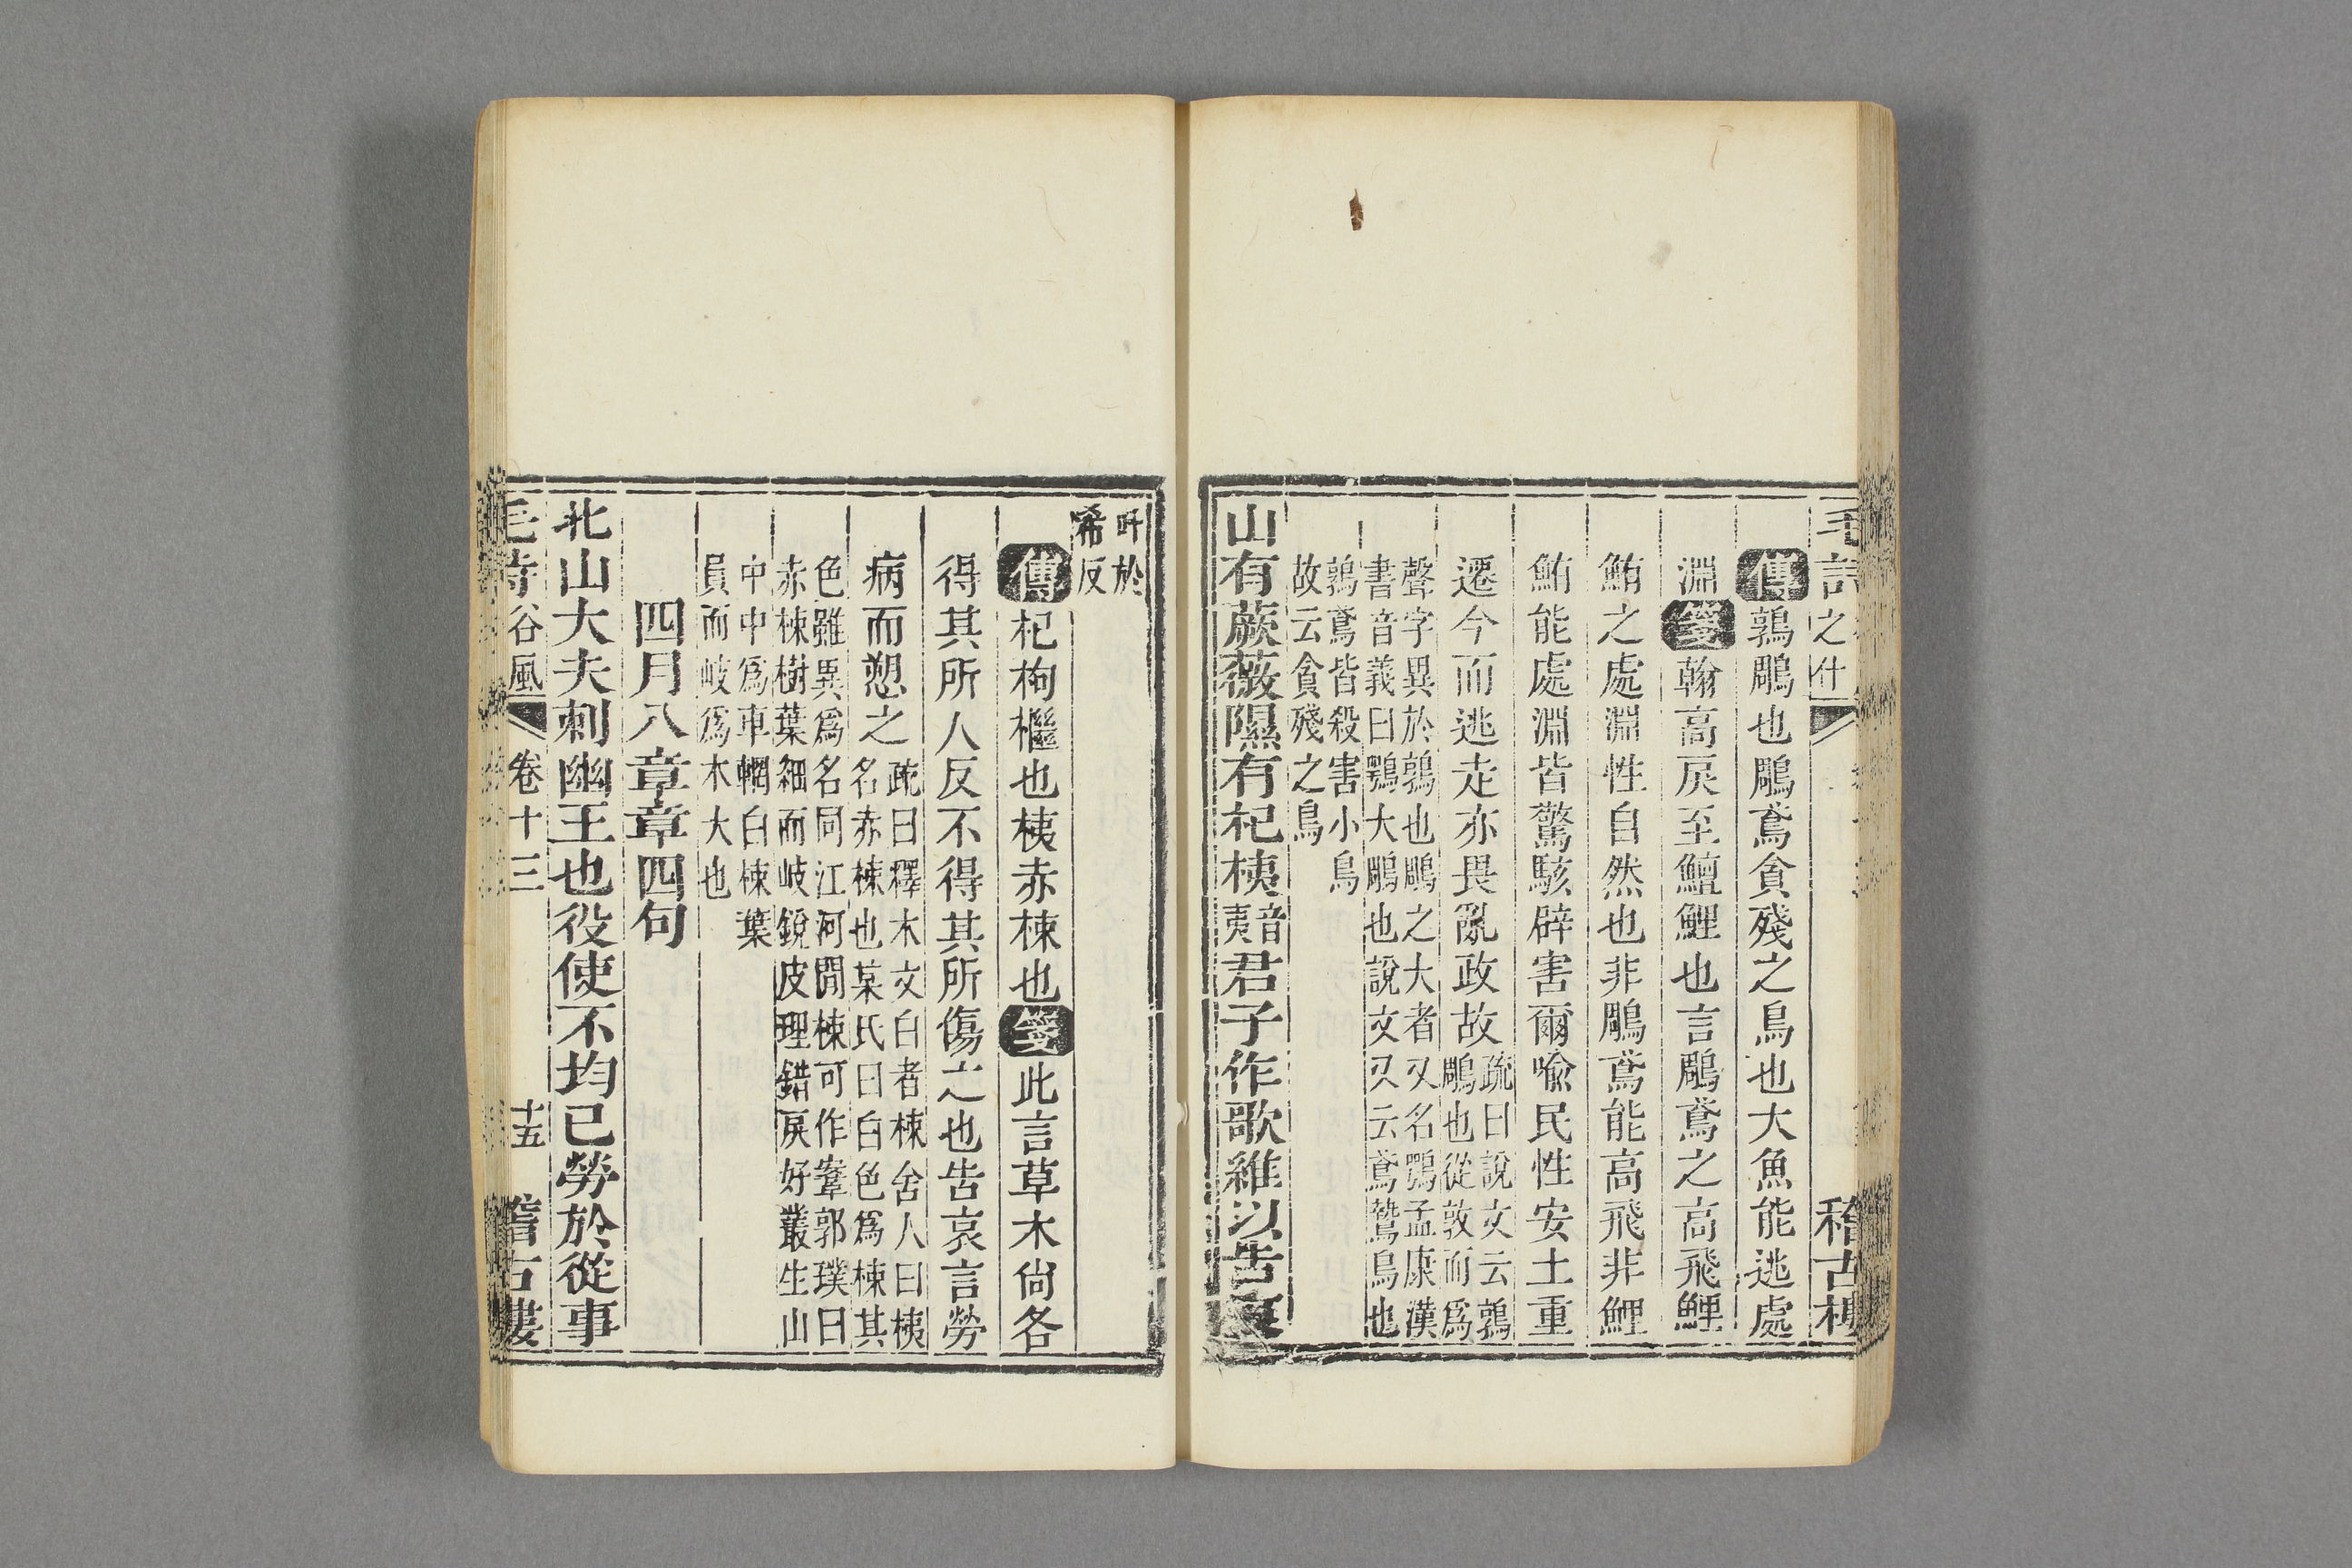 毛詩之什
稽古樓
傳鶉鵰也鵰鳶貪殘之鳥也大魚能逃處
淵箋翰高戾至鱣鯉也言鵰鳶之高飛鯉
鮪之處淵性自然也非鵰鳶能高飛非鯉
鮪能處淵皆驚駭辟害爾喻民性安土重
遷今而逃走亦畏亂政故疏曰說文云鶉
鵰也從敦而爲
聲字異於鶉也鵰之大者又名鶚孟康漢
書音義曰鶚大鵰也說文又云鳶鷙鳥也
鶉鳶皆殺害小鳥
故云貪殘之鳥
山有蕨薇隰有杞桋音
夷君子作歌維以告哀
叶於
希反
傳杞枸檵也桋赤楝也箋此言草木尙各
得其所人反不得其所傷之也告哀言勞
病而愬之疏曰釋木文白者楝舍人曰桋
名赤楝也某氏曰白色爲楝其
色雖異爲名同江河閒楝可作鞌郭璞曰
赤楝樹葉細而岐銳皮理錯戾好叢生山
中中爲車輞白楝葉
員而岐爲木大也
四月八章章四句
北山大夫刺幽王也役使不均已勞於從事
毛詩谷風
卷十三
十五
稽古樓